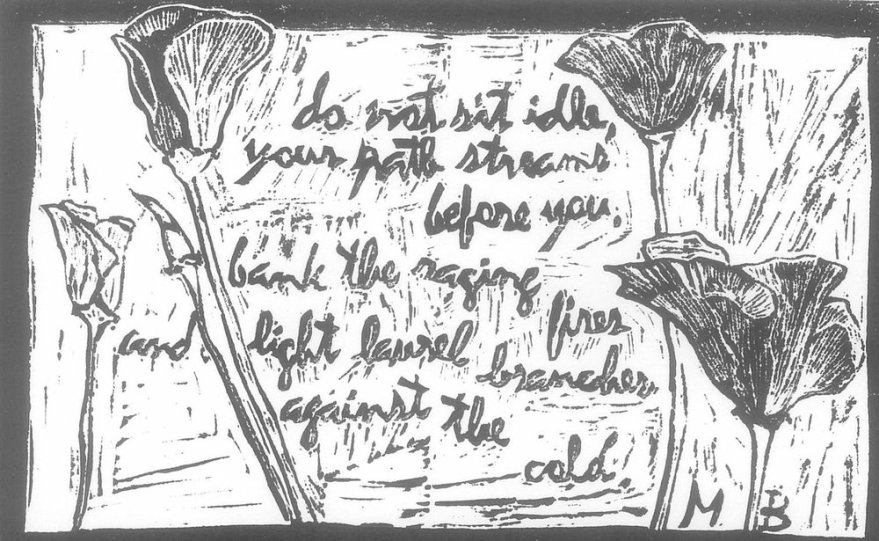 do not sit idle,
your path streams
before you,
bank the raging
fires
and light laurel
branches
against the
cold
M B